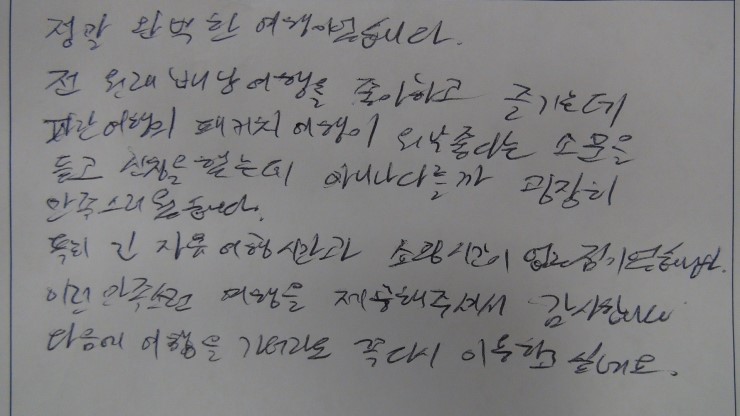 정말 완벽한 여행이었습니다.
전 원래 배낭여행을 좋아하고 즐기는데
파란여행의 패키지여행이 워낙좋다는 소문을
듣고 신청을 했는데 아니나다를까 굉장히
만족스러웠습니다.
특히 긴 자유여행시간과 쇼핑시간이 없는점이
이런 만족스런 여행을 제공해주셔서 감사합니다
다음에 여행을 가더라도 꼭다시 이용하고 싶네요.